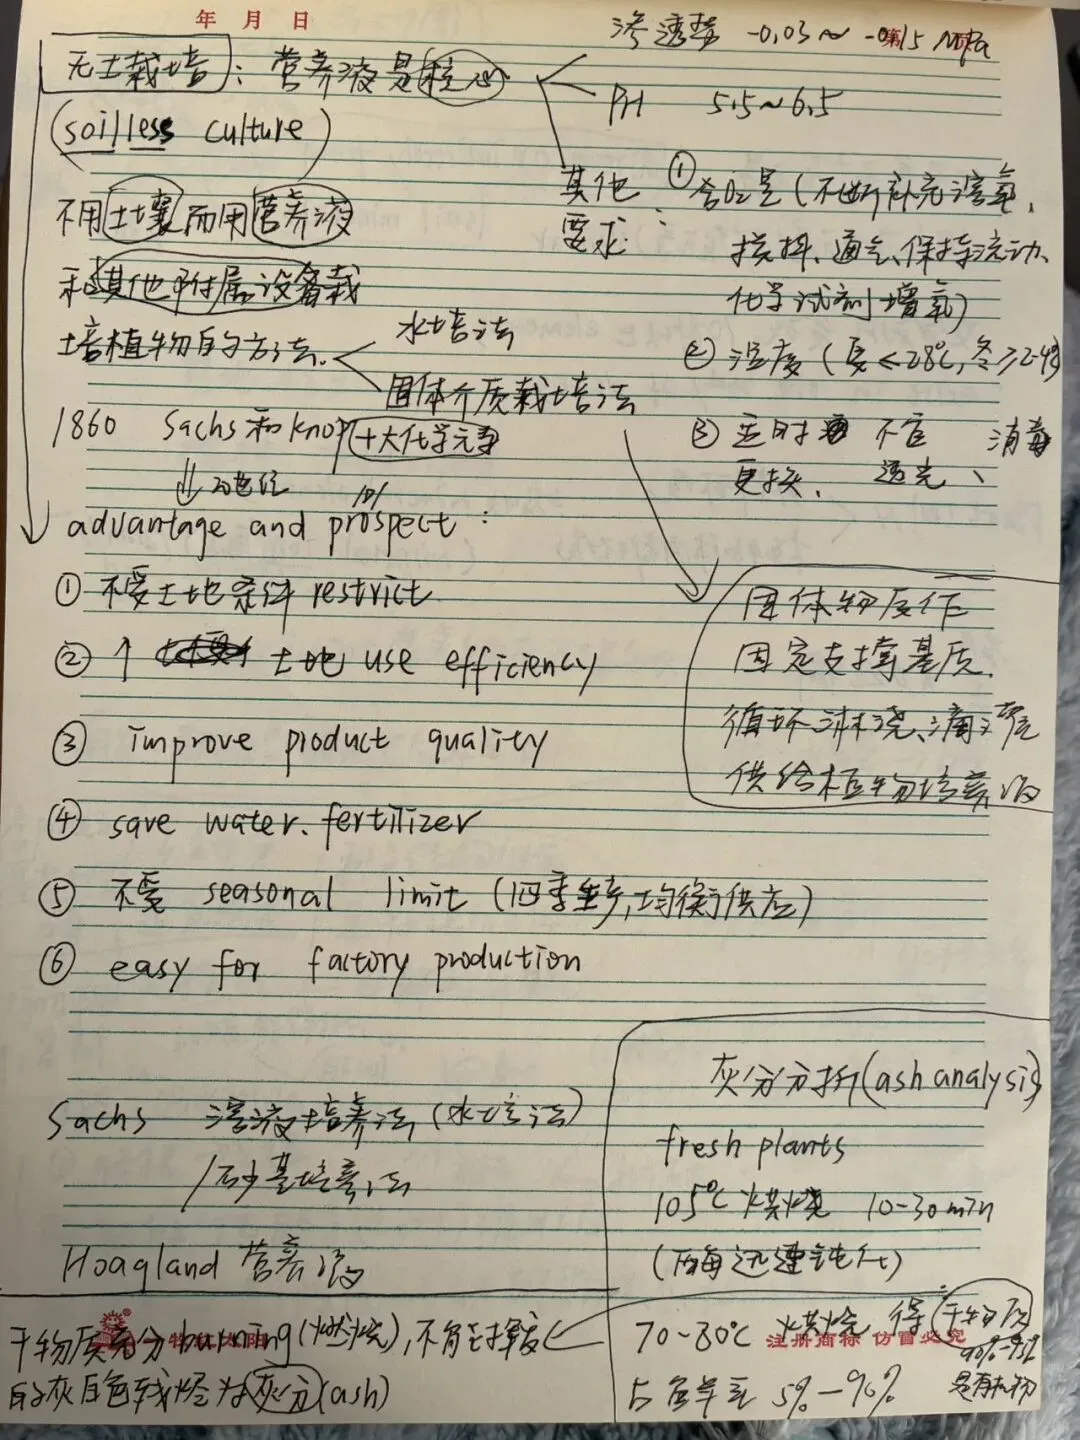 年 月 日
渗透势 -0.03~-0.15 MPa
无土栽培: 营养液是核心
PH 5.5~6.5
(soilless culture)
其他要求: ① 含O2量(不断补充溶氧,
搅拌、通气、保持流动、
化学试剂增氧)
② 温度(夏≤28℃,冬≥
③ 定时更换、 不宜透光、 消毒
不用土壤而用营养液
和其他附属设备栽
培植物的方法.
水培法
固体介质栽培法
1860 Sachs和knop 十大化学元素
⇓ 奠定
advantage and prospect:
① 不受土地条件 restrict
② ↑ 土地 use efficiency
③ improve product quality
④ save water. fertilizer
⑤ 不受 seasonal limit (四季生产,均衡供应)
⑥ easy for factory production
固体物质作
固定支撑基质.
循环淋浇、滴灌
供给植物培养液
Sachs 溶液培养法(水培法)
/砂基培养法
Hoagland 营养液
灰分分析(ash analysis)
fresh plants
105℃ 烘烧 10-30min
(酶迅速钝化)
70-80℃ 烘烧 得 干物质
90%-95%
是有机物
占鲜重 5%-90%
干物质充分burning(燃烧),不能挥发
的灰白色残烬为灰分(ash)
注册商标 仿冒必究